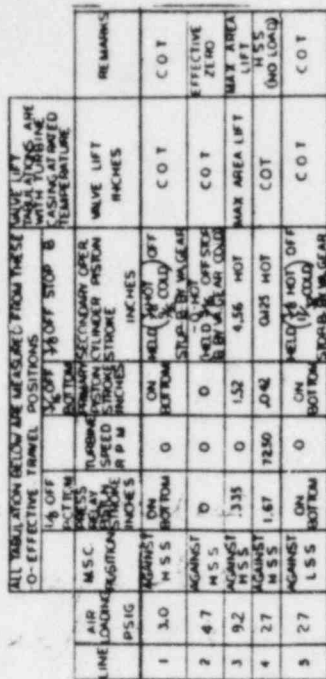 ALL TABULATION BELOW ARE MEASURED FROM THESE
-O- EFFECTIVE TRAVEL POSITIONS
VALVE LIFT
TABULATIONS ARE
WITH TURBINE
CASING AT RATED
TEMPERATURE
1/8 OFF
BOTTOM
1/16 OFF
BOTTOM
7/8 OFF STOP B
LINE
AIR
LOADING
PSIG
M.S.C.
POSITION
PRESS
RELAY
STROKE
INCHES
TURBINE
SPEED
R P M
PRIMARY
PISTON
STROKE
INCHES
SECONDARY OPER.
CYLINDER PISTON
STROKE
INCHES
VALVE LIFT
INCHES
REMARKS
1
3.0
AGAINST
H S S
ON
BOTTOM
O
ON
BOTTOM
HELD
HOT
COLD
OFF
STOP B BY VA. GEAR
C O T
C O T
2
4.7
AGAINST
H S S
O
O
O
-O- HOT
HELD
OFF STOP
B BY VA. GEAR COLD
C O T
EFFECTIVE
ZERO
3
9.2
AGAINST
H S S
.335
O
1.52
4.56 HOT
MAX AREA LIFT
MAX AREA
LIFT
4
27
AGAINST
H S S
1.67
7230
.042
0.125 HOT
COT
H S S
(NO LOAD)
5
27
AGAINST
L S S
ON
BOTTOM
O
ON
BOTTOM
HELD
HOT
COLD
OFF
STOP B BY VA. GEAR
C O T
C O T